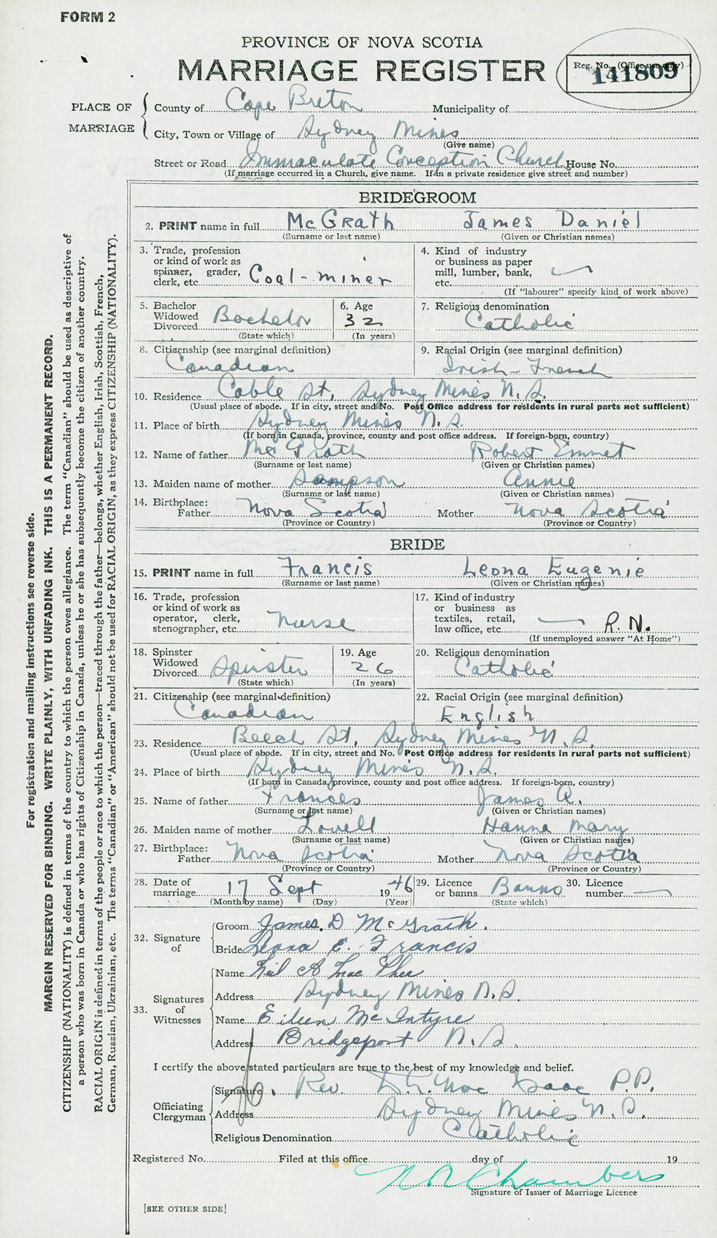 FORM 2
PROVINCE OF NOVA SCOTIA
MARRIAGE REGISTER
Reg. No. (Office use only)
141809
PLACE OF MARRIAGE
County of Cape Breton Municipality of
City, Town or Village of Sydney Mines
(Give name)
Street or Road Immaculate Conception Church House No.
(If marriage occurred in a Church, give name. If in a private residence give street and number)
BRIDEGROOM
2. PRINT name in full McGrath James Daniel
(Surname or last name) (Given or Christian names)
3. Trade, profession or kind of work as spinner, grader, clerk, etc. Coal-miner
4. Kind of industry or business as paper mill, lumber, bank, etc.
(If "labourer" specify kind of work above)
5. Bachelor Widowed Divorced Bachelor
(State which)
6. Age 32
(In years)
7. Religious denomination Catholic
8. Citizenship (see marginal definition) Canadian
9. Racial Origin (see marginal definition) Irish-French
10. Residence Cable St. Sydney Mines N.S.
(Usual place of abode. If in city, street and No. Post Office address for residents in rural parts not sufficient)
11. Place of birth Sydney Mines N.S.
(If born in Canada, province, county and post office address. If foreign-born, country)
12. Name of father McGrath Robert Emmet
(Surname or last name) (Given or Christian names)
13. Maiden name of mother Sampson Annie
(Surname or last name) (Given or Christian names)
14. Birthplace: Father Nova Scotia Mother Nova Scotia
(Province or Country) (Province or Country)
BRIDE
15. PRINT name in full Francis Leona Eugenie
(Surname or last name) (Given or Christian names)
16. Trade, profession or kind of work as operator, clerk, stenographer, etc. Nurse
17. Kind of industry or business as textiles, retail, law office, etc. R.N.
(If unemployed answer "At Home")
18. Spinster Widowed Divorced Spinster
(State which)
19. Age 26
(In years)
20. Religious denomination Catholic
21. Citizenship (see marginal definition) Canadian
22. Racial Origin (see marginal definition) English
23. Residence Beech St. Sydney Mines N.S.
(Usual place of abode. If in city, street and No. Post Office address for residents in rural parts not sufficient)
24. Place of birth Sydney Mines N.S.
(If born in Canada, province, county and post office address. If foreign-born, country)
25. Name of father Frances James A.
(Surname or last name) (Given or Christian names)
26. Maiden name of mother Lovell Hanna Mary
(Surname or last name) (Given or Christian names)
27. Birthplace: Father Nova Scotia Mother Nova Scotia
(Province or Country) (Province or Country)
28. Date of marriage 17 Sept 1946
(Month by name) (Day) (Year)
29. Licence or banns Banns
(State which)
30. Licence number
32. Signature of
Groom James D McGrath.
Bride Leona E. Francis
33. Signatures of Witnesses
Name A MacPhee
Address Sydney Mines N.S.
Name Eileen McIntyre
Address Bridgeport N.S.
I certify the above stated particulars are true to the best of my knowledge and belief.
Officiating Clergyman
Signature. Rev. Isaac P.P.
Address Sydney Mines N.S.
Religious Denomination Catholic
Registered No. Filed at this office day of 19
Chambers
Signature of Issuer of Marriage Licence
[SEE OTHER SIDE]
For registration and mailing instructions see reverse side.
MARGIN RESERVED FOR BINDING. WRITE PLAINLY, WITH UNFADING INK. THIS IS A PERMANENT RECORD.
CITIZENSHIP (NATIONALITY) is defined in terms of the country to which the person owes allegiance. The term "Canadian" should be used as descriptive of
a person who was born in Canada or who has rights of Citizenship in Canada, unless he or she has subsequently become the citizen of another country.
RACIAL ORIGIN is defined in terms of the people or race to which the person—traced through the father—belongs, whether English, Irish, Scottish, French,
German, Russian, Ukrainian, etc. The terms "Canadian" or "American" should not be used for RACIAL ORIGIN, as they express CITIZENSHIP (NATIONALITY).